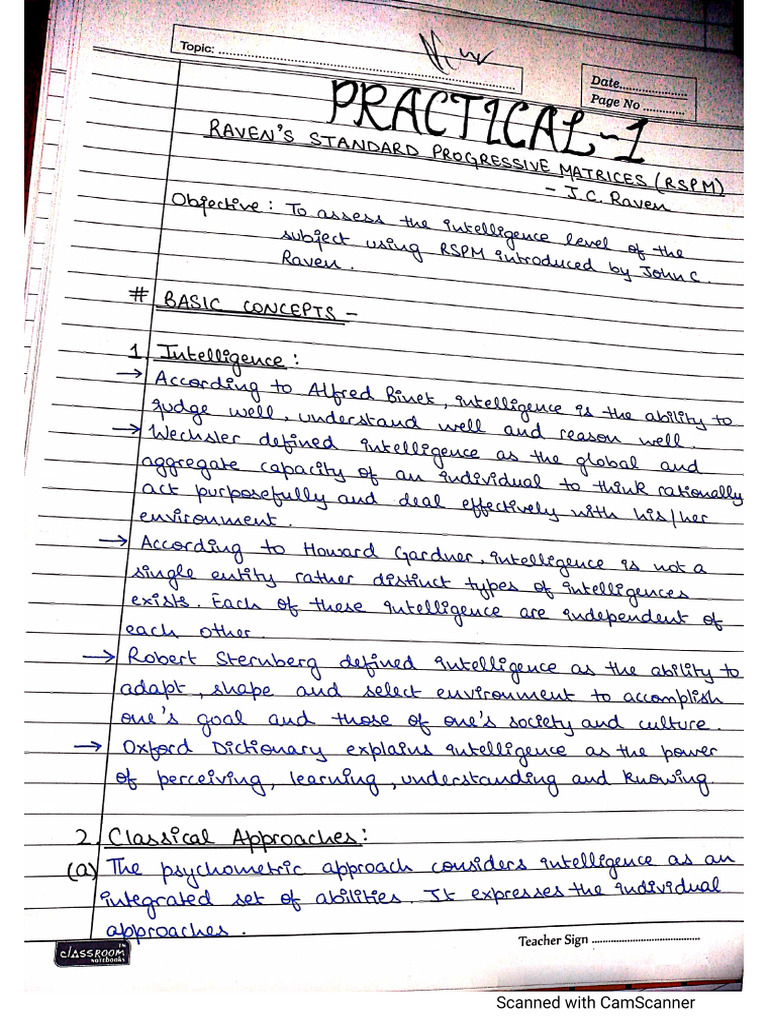 Topic: ......................................................
Date....................
Page No ............
PRACTICAL-1
RAVEN'S STANDARD PROGRESSIVE MATRICES (RSPM)
- J.C. Raven
Objective: To assess the intelligence level of the
subject using RSPM introduced by John C.
Raven.
# BASIC CONCEPTS -
1. Intelligence:
→ According to Alfred Binet, intelligence is the ability to
judge well, understand well and reason well.
→ Wechsler defined intelligence as the global and
aggregate capacity of an individual to think rationally
act purposefully and deal effectively with his/her
environment.
→ According to Howard Gardner, intelligence is not a
single entity rather distinct types of intelligences
exists. Each of these intelligence are independent of
each other.
→ Robert Sternberg defined intelligence as the ability to
adapt, shape and select environment to accomplish
one's goal and those of one's society and culture.
→ Oxford Dictionary explains intelligence as the power
of perceiving, learning, understanding and knowing.
2. Classical Approaches:
(a) The psychometric approach considers intelligence as an
integrated set of abilities. It expresses the individual
approaches.
Teacher Sign ....................................
CLASSROOM
NOTEBOOKS
Scanned with CamScanner